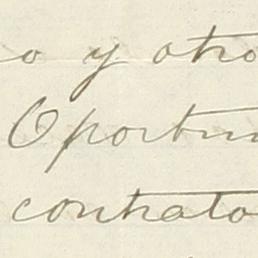 o y otro
Oportu
contrato